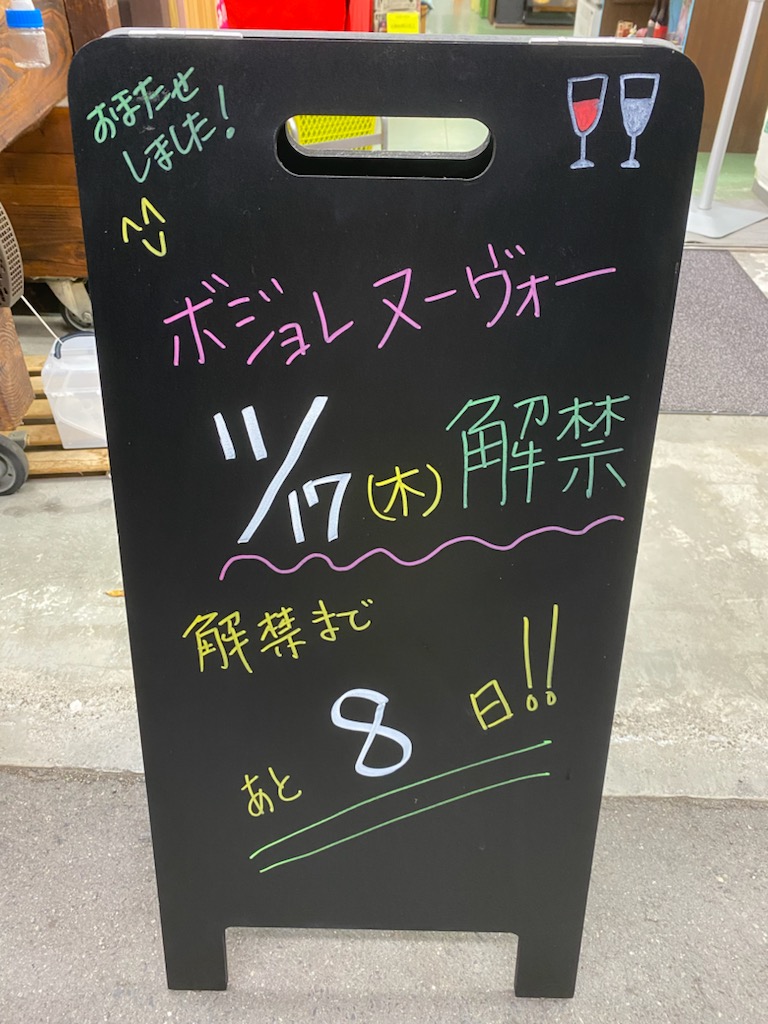 おまたせ
しました!
ボジョレ ヌーヴォー
11/17(木)解禁
解禁まで
あと 8 日!!